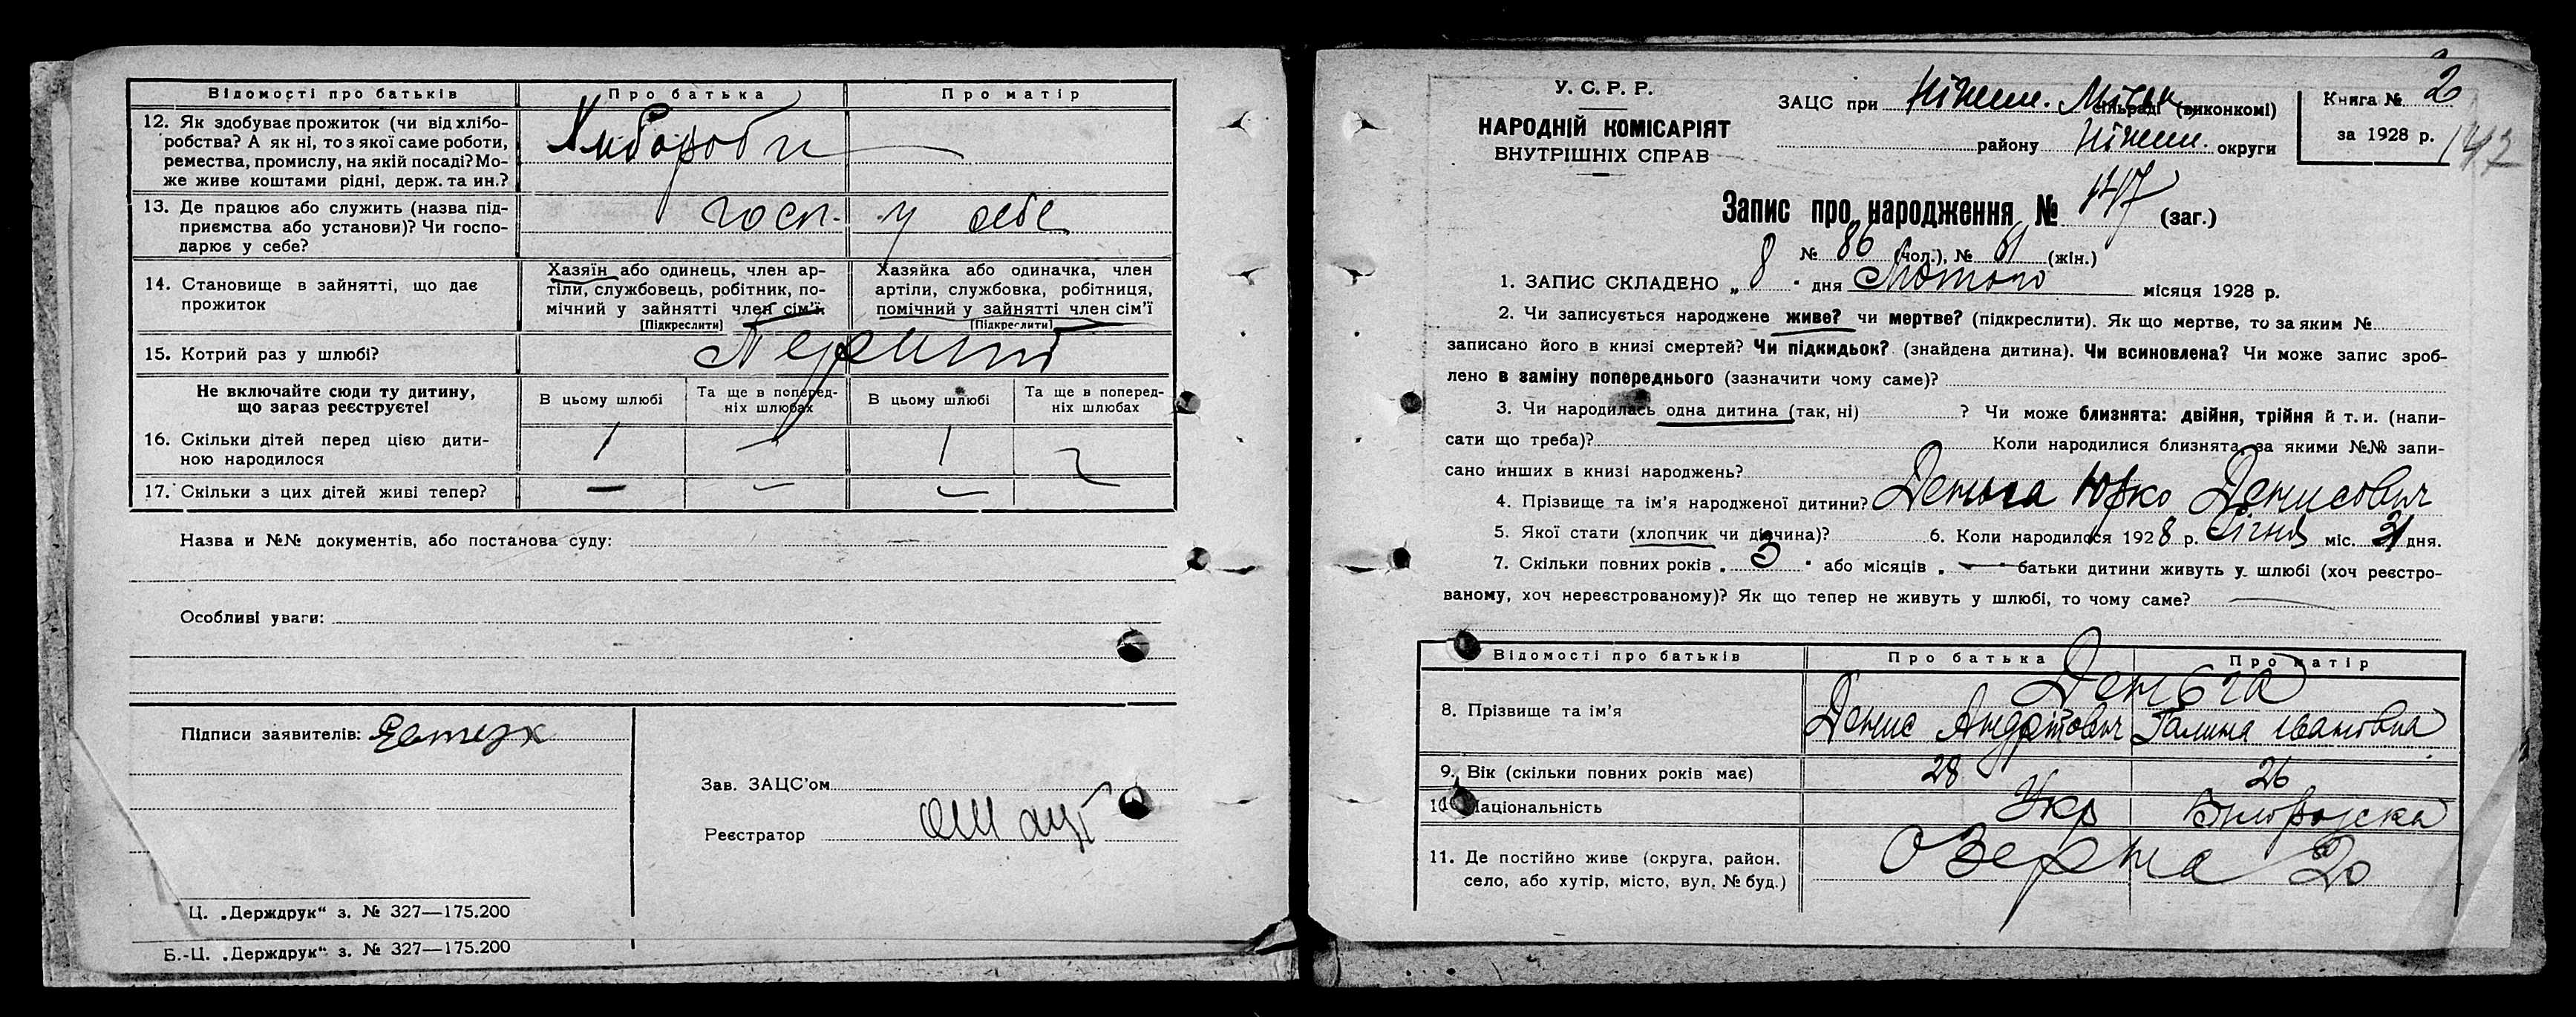 Відомості про батьків
Про батька
Про матір
12. Як здобуває прожиток (чи від хлібо-
робства? А як ні, то з якої саме роботи,
ремества, промислу, на якій посаді? Мо-
же живе коштами рідні, держ. та ин.?
Хлібороби
13. Де працює або служить (назва під-
приємства або установи)? Чи госпо-
дарює у себе?
госп. у себе
14. Становище в зайнятті, що дає
прожиток
Хазяїн або одинець, член ар-
тіли, службовець, робітник, по-
мічний у зайнятті член сім'ї
[Підкреслити]
Хазяйка або одиначка, член
артіли, службовка, робітниця,
помічний у зайнятті член сім'ї
[Підкреслити]
15. Котрий раз у шлюбі?
Перший
Не включайте сюди ту дитину,
що зараз реєструєте!
В цьому шлюбі
Та ще в поперед-
ніх шлюбах
В цьому шлюбі
Та ще в поперед-
ніх шлюбах
16. Скільки дітей перед цією дити-
ною народилося
1 — 1
17. Скільки з цих дітей живі тепер?
— — —
Назва и №№ документів, або постанова суду: —
Особливі уваги:
Підписи заявителів:
Зав. ЗАЦС'ом
Реєстратор
Ц. „Держдрук“ з. № 327—175.200
Б.-Ц. „Держдрук“ з. № 327—175.200
У. С. Р. Р.
НАРОДНІЙ КОМІСАРІЯТ
ВНУТРІШНІХ СПРАВ
ЗАЦС при Ніжен. сільраді (виконкомі)
району Ніжен. округи
Книга № 2
за 1928 р.
147
Запис про народження № 147 (заг.)
№ 86 (чол.), № 61 (жін.)
1. ЗАПИС СКЛАДЕНО „ 8 " дня Лютого місяця 1928 р.
2. Чи записується народжене живе? чи мертве? (підкреслити). Як що мертве, то за яким №
записано його в книзі смертей? Чи підкидьок? (знайдена дитина). Чи всиновлена? Чи може запис зроб-
лено в заміну попереднього (зазначити чому саме)?
3. Чи народилась одна дитина (так, ні) ? Чи може близнята: двійня, трійня й т. и. (напи-
сати що треба)? Коли народилися близнята, за якими №№ запи-
сано инших в книзі народжень?
4. Прізвище та ім'я народженої дитини? Деньга Юрко Денисович
5. Якої стати (хлопчик чи дівчина)? 6. Коли народилося 1928 р. Січня міс. 31 дня.
7. Скільки повних років „ 3 " або місяців „ — " батьки дитини живуть у шлюбі (хоч реєстро-
ваному, хоч нереєстрованому)? Як що тепер не живуть у шлюбі, то чому саме? —
Відомості про батьків
Про батька
Про матір
8. Прізвище та ім'я
Деньга
Денис Андрійович
Галина Івановна
9. Вік (скільки повних років має)
28
26
10. Національність
Укр
11. Де постійно живе (округа, район,
село, або хутір, місто, вул. № буд.)
Озерна 20